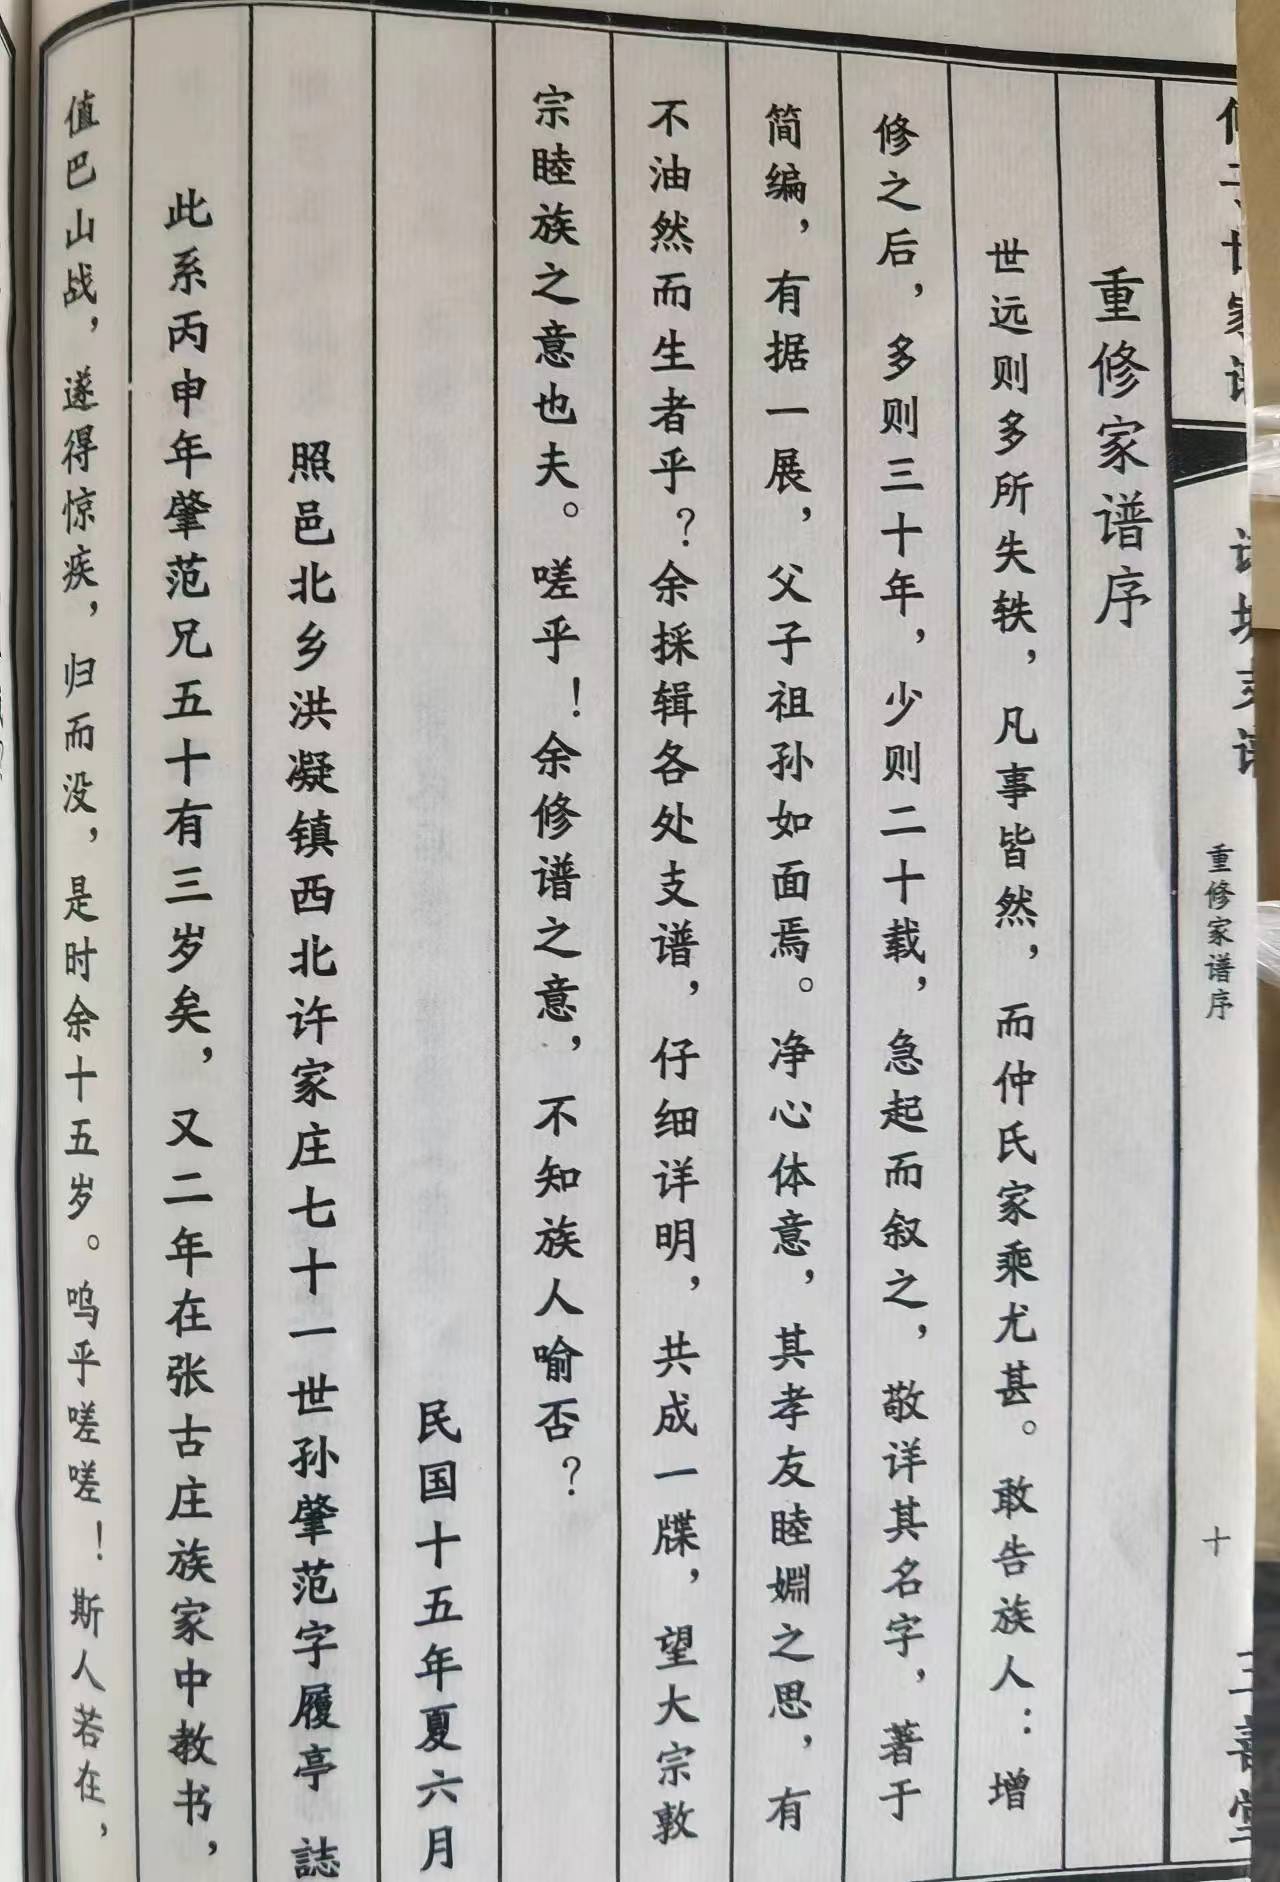 重修家谱序
十
重修家谱序
世远则多所失轶，凡事皆然，而仲氏家乘尤甚。敢告族人：增
修之后，多则三十年，少则二十载，急起而叙之，敬详其名字，著于
简编，有据一展，父子祖孙如面焉。净心体意，其孝友睦婣之思，有
不油然而生者乎？余採辑各处支谱，仔细详明，共成一牒，望大宗敦
宗睦族之意也夫。嗟乎！余修谱之意，不知族人喻否？
民国十五年夏六月
照邑北乡洪凝镇西北许家庄七十一世孙肇范字履亭 誌
此系丙申年肇范兄五十有三岁矣，又二年在张古庄族家中教书，
值巴山战，遂得惊疾，归而没，是时余十五岁。呜乎嗟嗟！斯人若在，